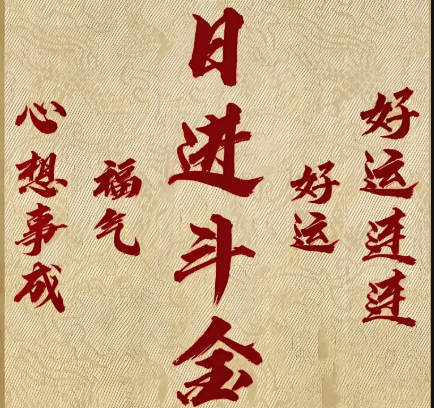 好运连连
好运
日进斗金
福气
心想事成